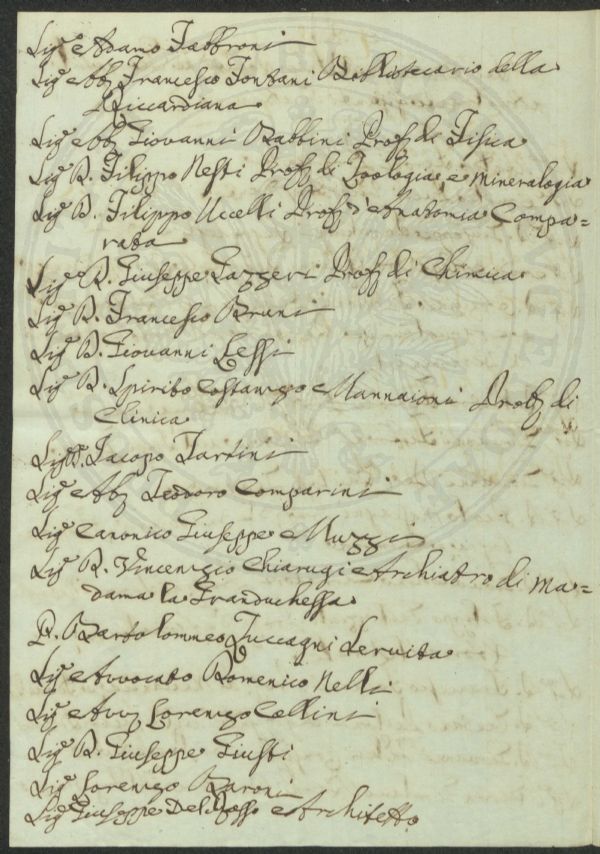 Sig.e Adamo Fabbroni
Sig.e Ab. Francesco Fontani Bibliotecario della
Riccardiana
Sig.e Ab. Giovanni Babbini Prof. di Fisica
Sig.e D. Filippo Nesti Prof. di Zoologia, e Mineralogia
Sig.e D. Filippo Uccelli Prof. d'Anatomia Compa=
rata
Sig.e D. Giuseppe Gazzeri Prof. di Chimica
Sig.e D. Francesco Bruni
Sig.e D. Giovanni Lessi
Sig.e D. Spirito Costanzo Mannaioni Prof. di
Clinica
Sig.e Jacopo Tartini
Sig.e Ab. Teodoro Comparini
Sig.e Canonico Giuseppe Muzzi
Sig.e D. Vincenzio Chiarugi Archiatro di Ma=
dama la Granduchessa
P. Bartolommeo Zuccagni Servita
Sig.e Avvocato Domenico Nelli
Sig.e Avv. Lorenzo Collini
Sig.e D. Giuseppe Giusti
Sig.e Lorenzo Baroni
Sig.e Giuseppe Del Rosso Architetto